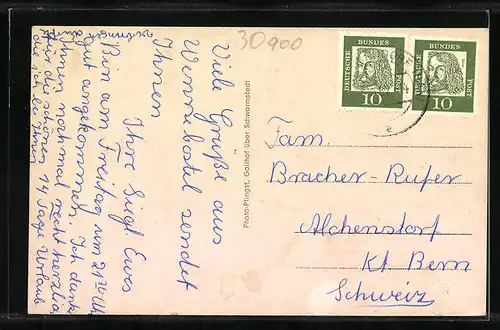 30900
Viele Grüße aus
Winnebostel sendet
Ihnen
Ihre Siegl. Ewes
Bin am Freitag um 21²⁰ Uhr
gut angekommen. Ich danke
Ihnen nochmal recht herzlich
für die schönen 14 Tage Urlaub
die ich bei Ihnen
verbringen durfte.
Photo-Pfingst, Gailhof über Schwarmstedt
DEUTSCHE BUNDES POST
10
DEUTSCHE BUNDES POST
10
Fam.
Bracher-Rufer
Alchenstorf
Kt Bern
Schweiz